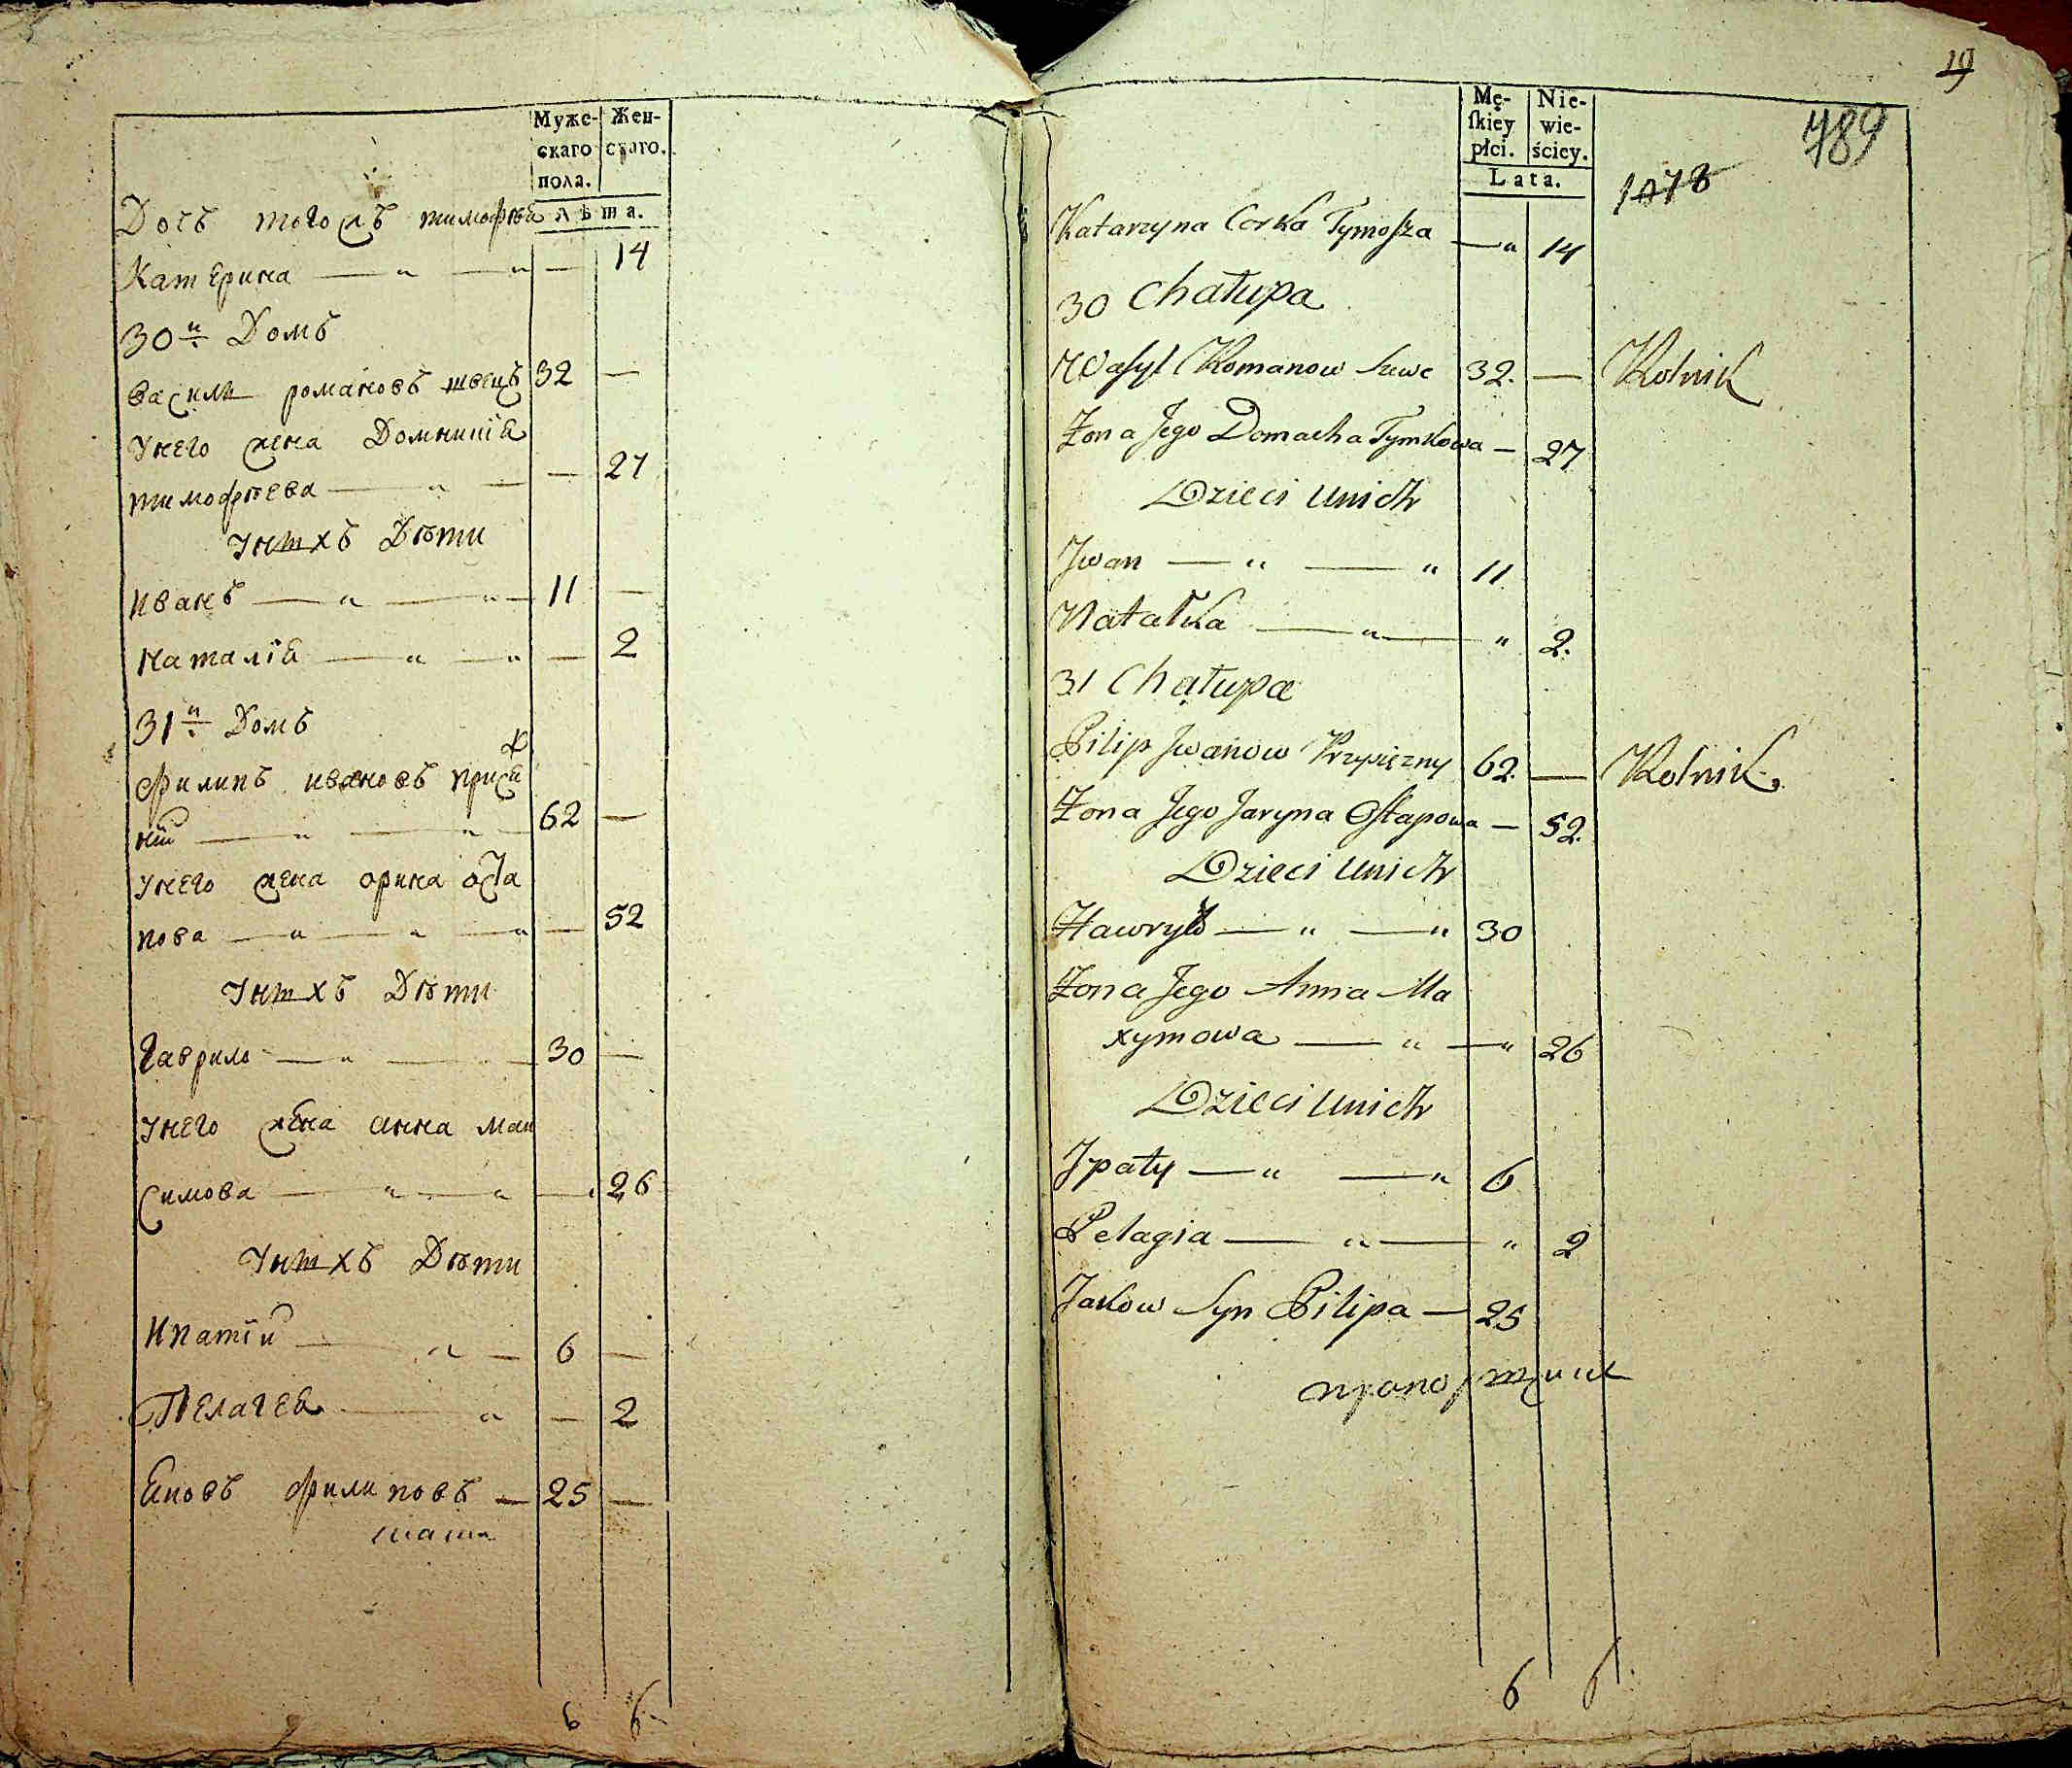 Муже-
скаго
пола.
Жен-
скаго.
Лѣта.
Дочъ тогожъ тимофѣя
Катерина — „ — „ — 14
30й Домъ
василь романовъ швецъ 32 —
Унего жена Домникія
тимофѣева — „ — — 27
Унихъ Дѣти
иванъ — „ — „ — 11 —
наталія — „ — „ — 2
31й Домъ
филипъ ивановъ
ній — „ — „ — 62 —
Унего жена орина оста
пова — „ — „ — „ — 52
Унихъ Дѣти
Гаврило — „ — 30 —
Унего жена анна мак
симова — „ — „ — 26
Унихъ Дѣти
Ипатіи — „ — 6 —
Пелагея — „ — 2
Яковъ филиповъ — 25 —
6 6
19
789
1078
Mę-
ſkiey
płci.
Nie-
wie-
ściey.
Lata.
Katarzyna Corka Tymoſza — „ 14
30 Chałupa
Waſyl Romanow Szwe 32. — Rolnik
Żona Jego Domacha Tymkowa — 27
Dzieci Unich
Jwan — „ — „ 11
Natałka — „ — „ 2.
31 Chałupa
Pilip Jwanow 62. — Rolnik
Żona Jego Jaryna Oſtapowa — 52.
Dzieci Unich
Hawryło — „ — „ 30
Żona Jego Anna Ma
xymowa — „ — „ 26
Dzieci Unich
Jpaty — „ — „ 6
Pelagia — „ — „ 2
Jakow Syn Pilipa — 25
6 6